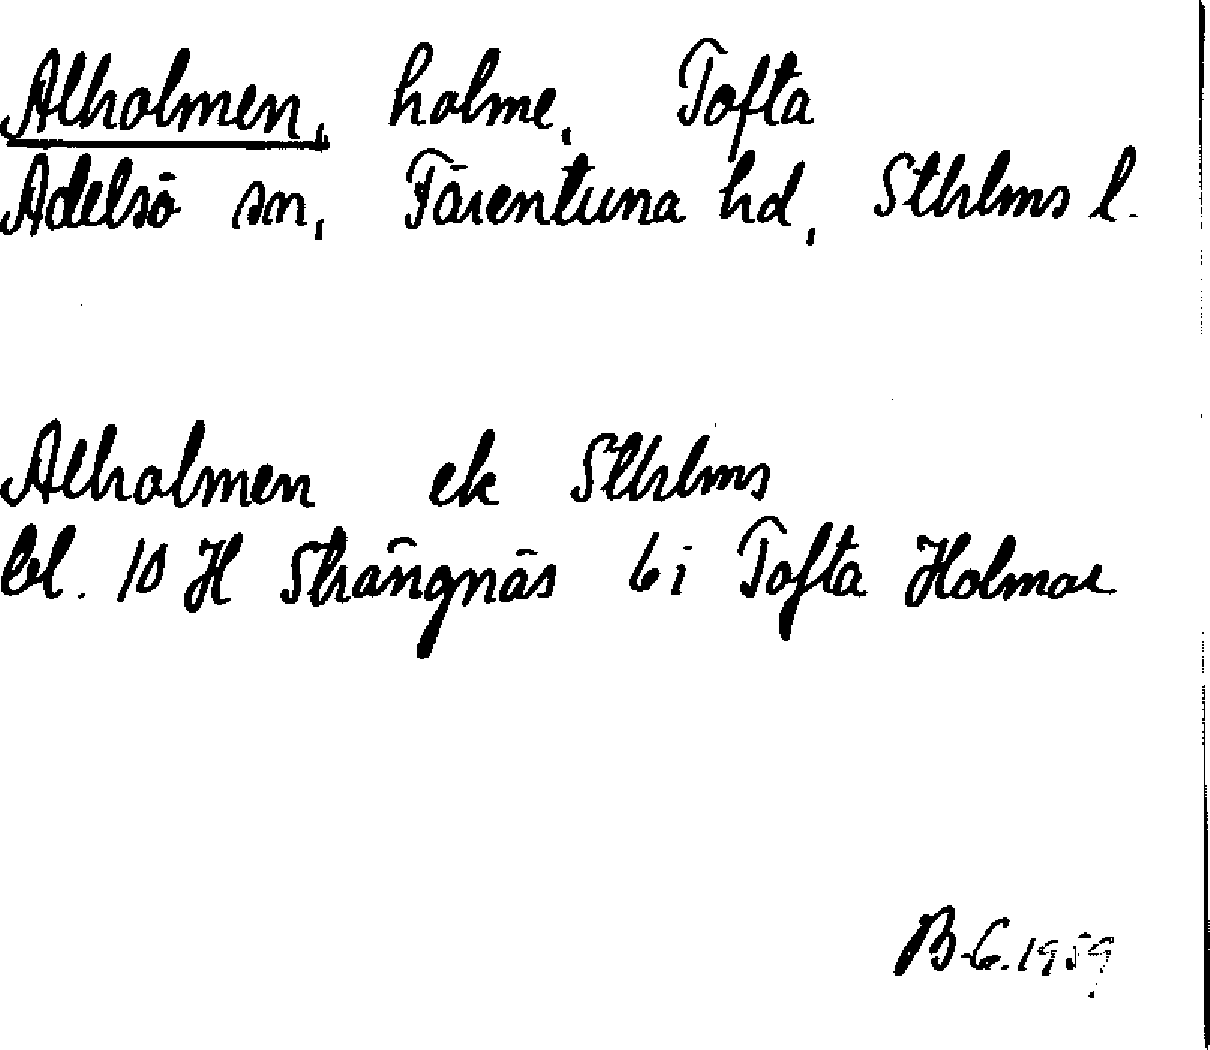 Alholmen, holme, Tofta
Adelsö sn, Färentuna hd, Sthlms l.
Alholmen ek Sthlms
bl. 10 H Strängnäs 6 i Tofta Holmar
B-G. 1959